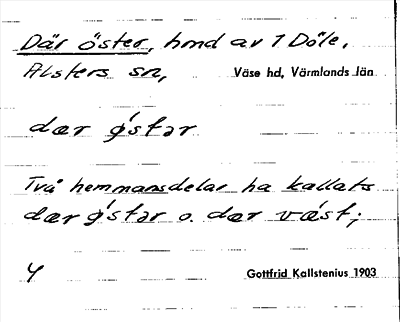 Där öster, hmd av 1 Döle,
Alsters sn, Väse hd, Värmlands län
dær ǵstər
Två hemmansdelar ha kallats
dær ǵstər o. dær væst;
4 Gottfrid Kallstenius 1903